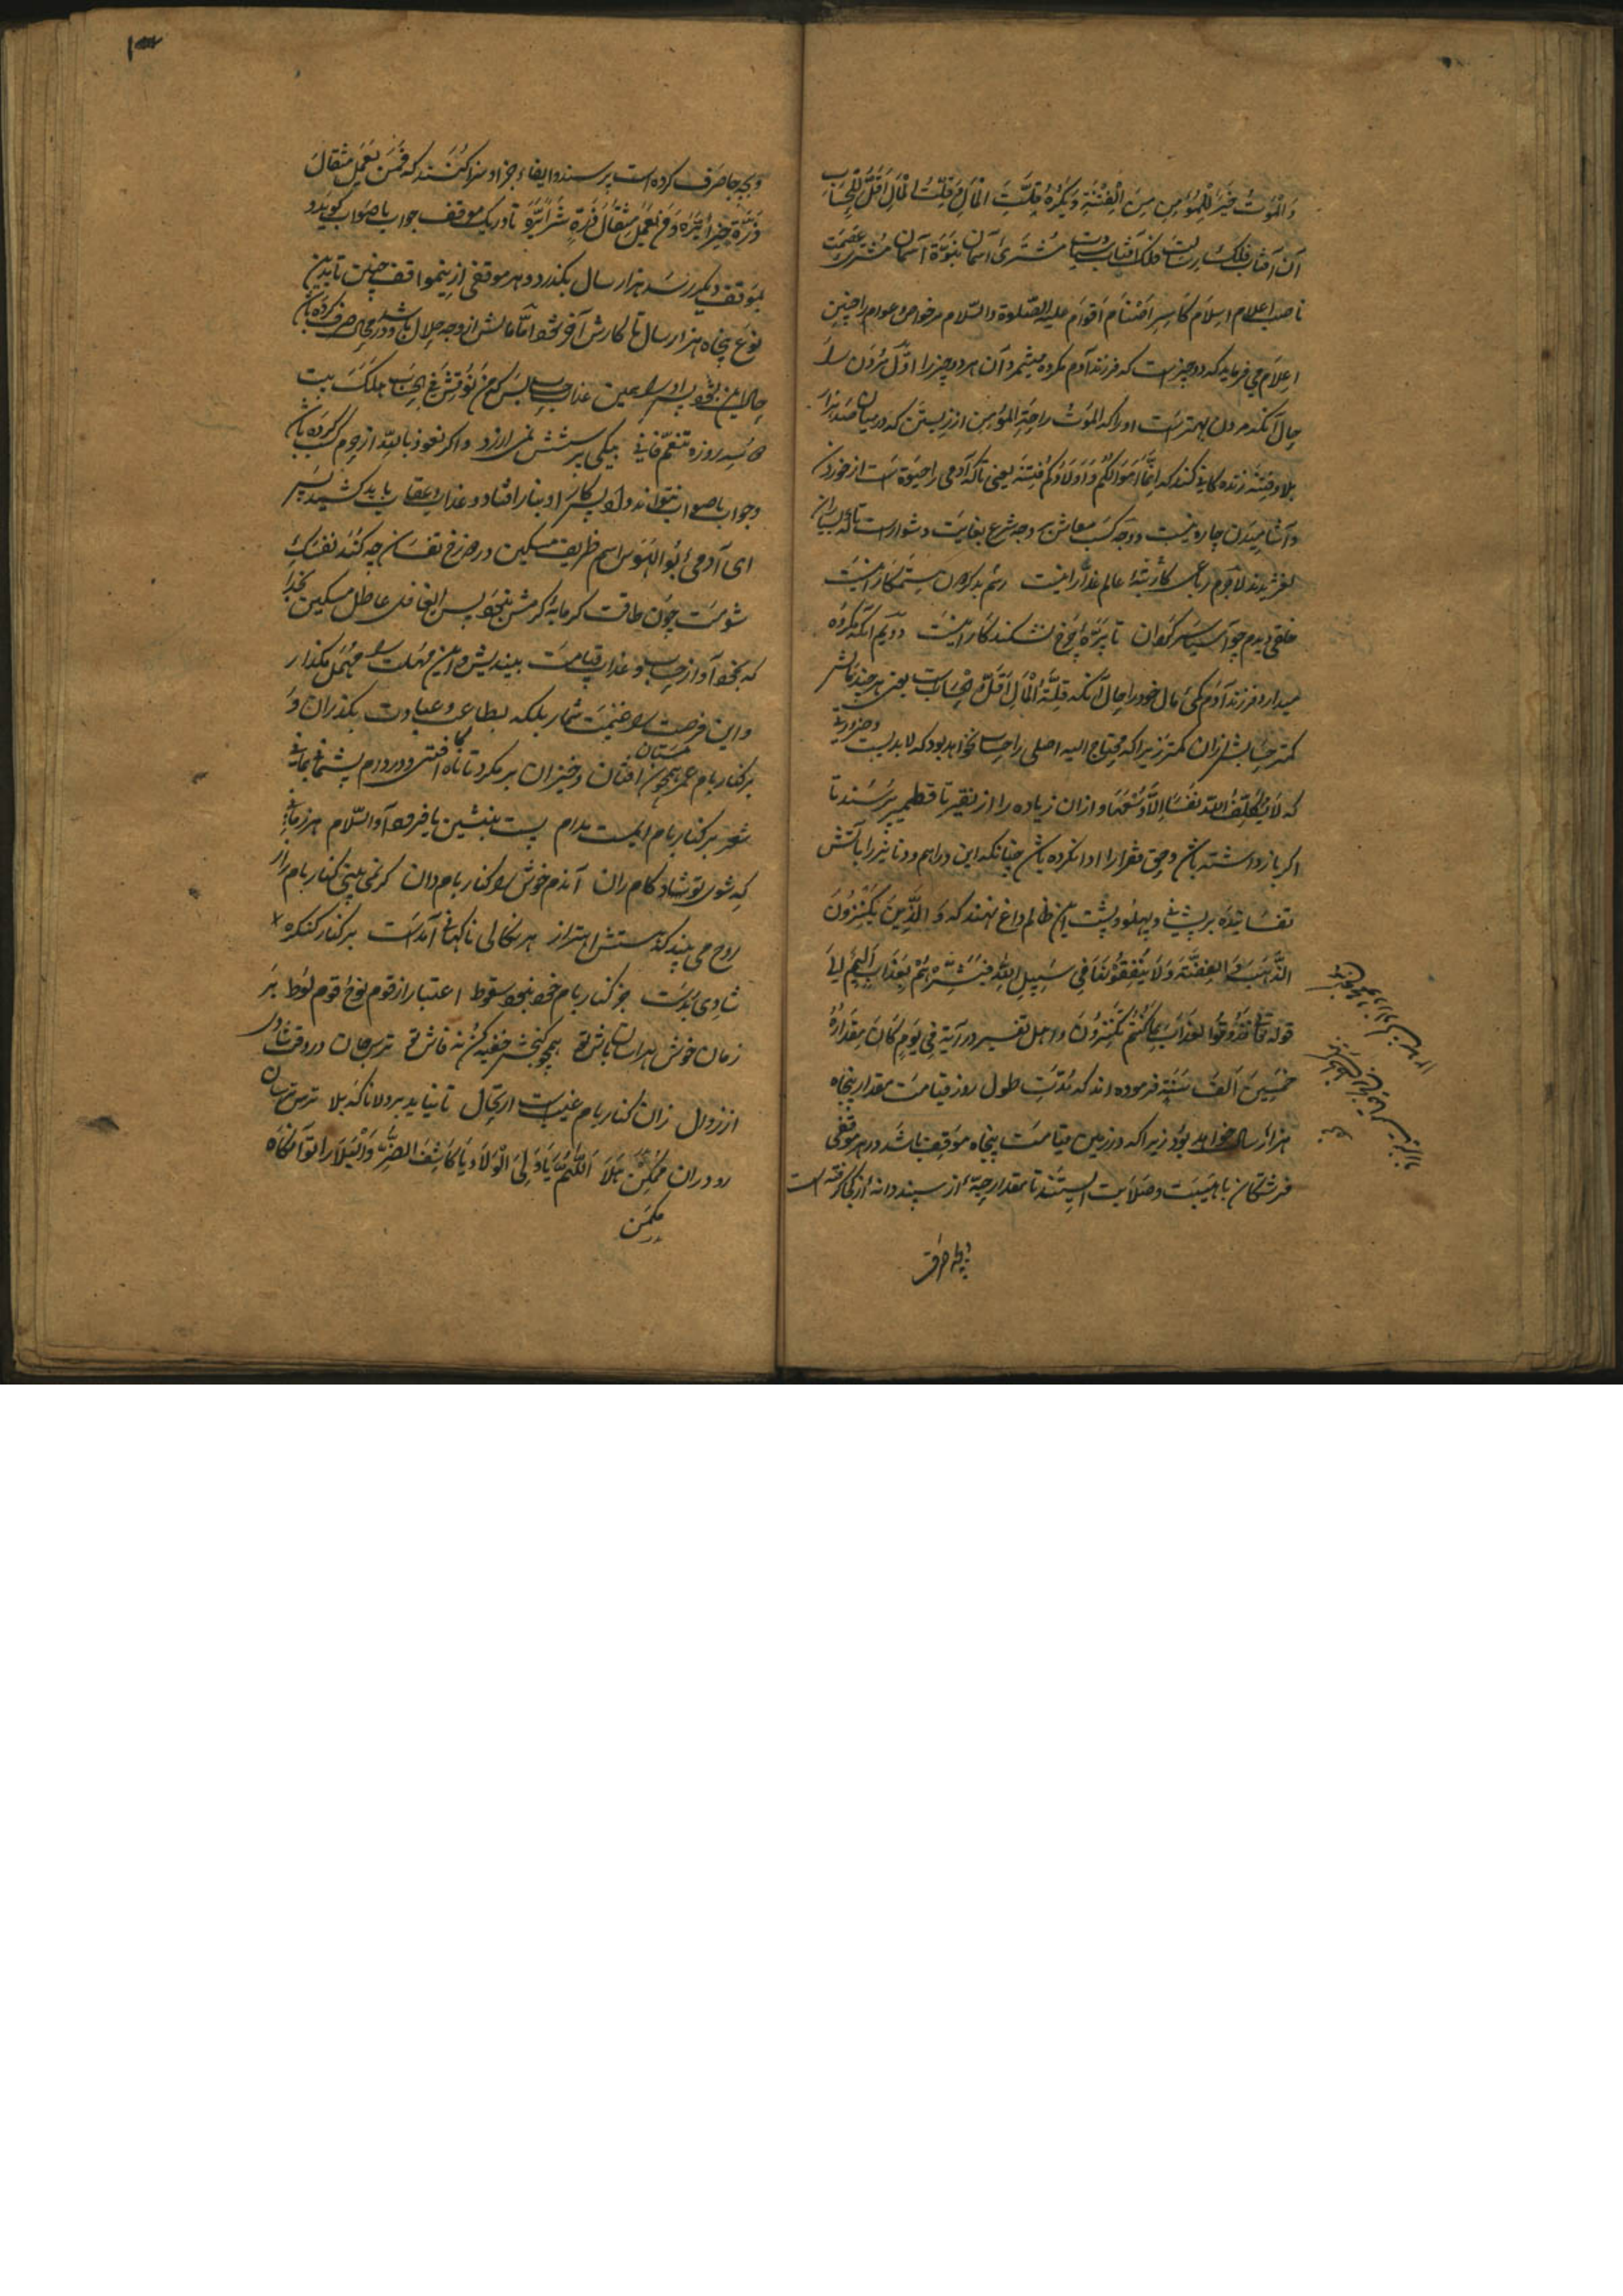 وَالْمَوْتُ خَیْرٌ لِلْمُؤمِنِ مِنَ الْفِتْنَةِ وَیَکْرَهُ قِلَّتَ الْمَالِ وَقِلَّتُ الْمَالِ اَقَلُّ لِلْحِسَابِ
آن آفتاب فلک رسالت فلک آفتاب سیادت مشتری آسمان نبوّة آسمان مشتری عصمت
ناصب اعلام اسلام کاسر اصنام اقوام علیه الصّلوة والسّلام مر خواص و عوام را چنین
اعلام می فرماید که دو چیز است که فرزند آدم مکروه میشمرد آن هر دو چیز را اوّل مردن را
حال آنکه مردن بهتر است او را که الموت راحة المؤمن از زیستن که در میان صد هزار
بلا و فتنه زنده کانی کند که اِنَّمَا اَمْوَالُکُمْ وَاَوْلَادُکُمْ فِتْنَة یعنی تا که آدمی را حیوة است از خوردن
و آشامیدن چاره نیست و وجه کسب معاش بر وجه شرع بغایت دشوار است تا که
لغزیدند لاجرم رباعی کار بتۀ عالم غدّار اینست رسم بد کردن ستمکار اینست
خلقی دیدم چو آسیا سرگردان تا پرۀ چرخ نشکند کار اینست دویم آنکه مکروه
میدارد فرزند آدم کمی مال خود را حال آنکه قِلَّةُ الْمَالِ اَقَلُّ لِلْحِسَاب است یعنی هر چند مالش
کمتر حسابش از آن کمتر زیرا که محتاج الیه اصلی را حساب نخواهد بود که لابدیست و ضروریت
که لَا یُکَلِّفُ اللّٰهُ نَفْسًا اِلَّا وُسْعَهَا و از ان زیاده را از نقیر تا قطمیر پرسند تا
اگر باز داشته باش و حق فقرا را ادا نکرده باش چنانکه این دراهم و دنانیر را بآتش
تفسانیده بر پیشانی و پهلو و پشت این ظالم داغ نهند که وَ الَّذِینَ یَکْنِزُونَ
الذَّهَبَ وَ الفِضَّةَ وَلَا یُنْفِقُوْنَهَا فِی سَبِیلِ اللّٰهِ فَبَشِّرْهُمْ بِعَذَابٍ اَلِیمٍ الی
قوله تعا فَذُوقُوا العَذَابَ بِمَا کُنْتُمْ تَکْنِزُونَ و اهل تفسیر در آیة فِی یَوْمٍ کَانَ مِقْدَارُهُ
خَمْسِینَ اَلْفَ سَنَةٍ فرموده اند که مدّت طول روز قیامت مقدار پنجاه
هزار سال خواهد بود زیرا که در زمین قیامت پنجاه موقف باشد در هر موقفی
فرشتکان با هیبت و صلابت ایستند تا مقدار حبّۀ از سپند دانه از کجا گرفته است
وبچه جا صرف
وبچه جا صرف کرده است پرسند و ایفاء جزا و سزا کنند که فَمَن یَعْمَلْ مِثْقَالَ
ذَرَّةٍ خَیْرًا یَرَهُ وَمَن یَعْمَلْ مِثْقَالَ ذَرَّةٍ شَرًّا یَرَهُ تا در یک موقف جواب باصواب کوید و
بموقف دیگر رسد هزار سال بکذرد و هر موقفی از این مواقف چنین تا بدین
نوع پنجاه هزار سال تا کارش آخر شود امّا مالش از وجه حلال باشد و در محل صرف کرده باش
حال این بود پس او را همین عذاب حساب بس که مَن نُوقِشَ فِی الحِسَابِ هَلَکَ بیت
سه روزه تنعّم فانی بیکی پرسشش نمی ارزد و اگر نعوذ باللّه از حرام کسب کرده باش
و جواب باصواب نتواند داد پس کار او بنار افتاد و عذاب و عقاب باید کشید پس
ای آدمی ابو الهوس اسم ظریف مسکین در دوزخ تفسان چه کند نفسک
شومت چون طاقت گرمابۀ گرمش نبود پس ای غافل عاطل مسکین بخدا
که بخود آ و از حساب و عذاب قیامت بیندیش و این مهلت را مهمل مگذار
و این فرصت را غنیمت شمار بلکه بطاعت و عبادت بکذران و
بر کنار بام عمر همچون مستان افتان و خیزان بر مکرد تا ناگاه نیفتی و در دام پشیمانی نمانی
شعر بر کنار بام ایست مدام پست بنشین یا فرود آ والسّلام هر زمانی
که شوی تو شاد کام ران آندم خوش را کنار بام دان گر نمی بینی کنار بام راز
روح می بیند که هستش اهتزاز هر نکالی ناکهان آمدست بر کنار کنکره
شادی بدست جز کنار بام خود نبود سقوط اعتبار از قوم نوح قوم لوط بر
زمان خوش هراسان باش تو همچو کنجش خفیه کن نه فاش تو ترس جان در وقت شادی
از زوال زان کنار بام غیبست ارتحال تا نیاید بر ولا ناکه بلا ترس ترسان
رو دران مکمن هلا اللّٰهم یا ولی الولا و یا کاشف الضرّ و البلا
مکمن